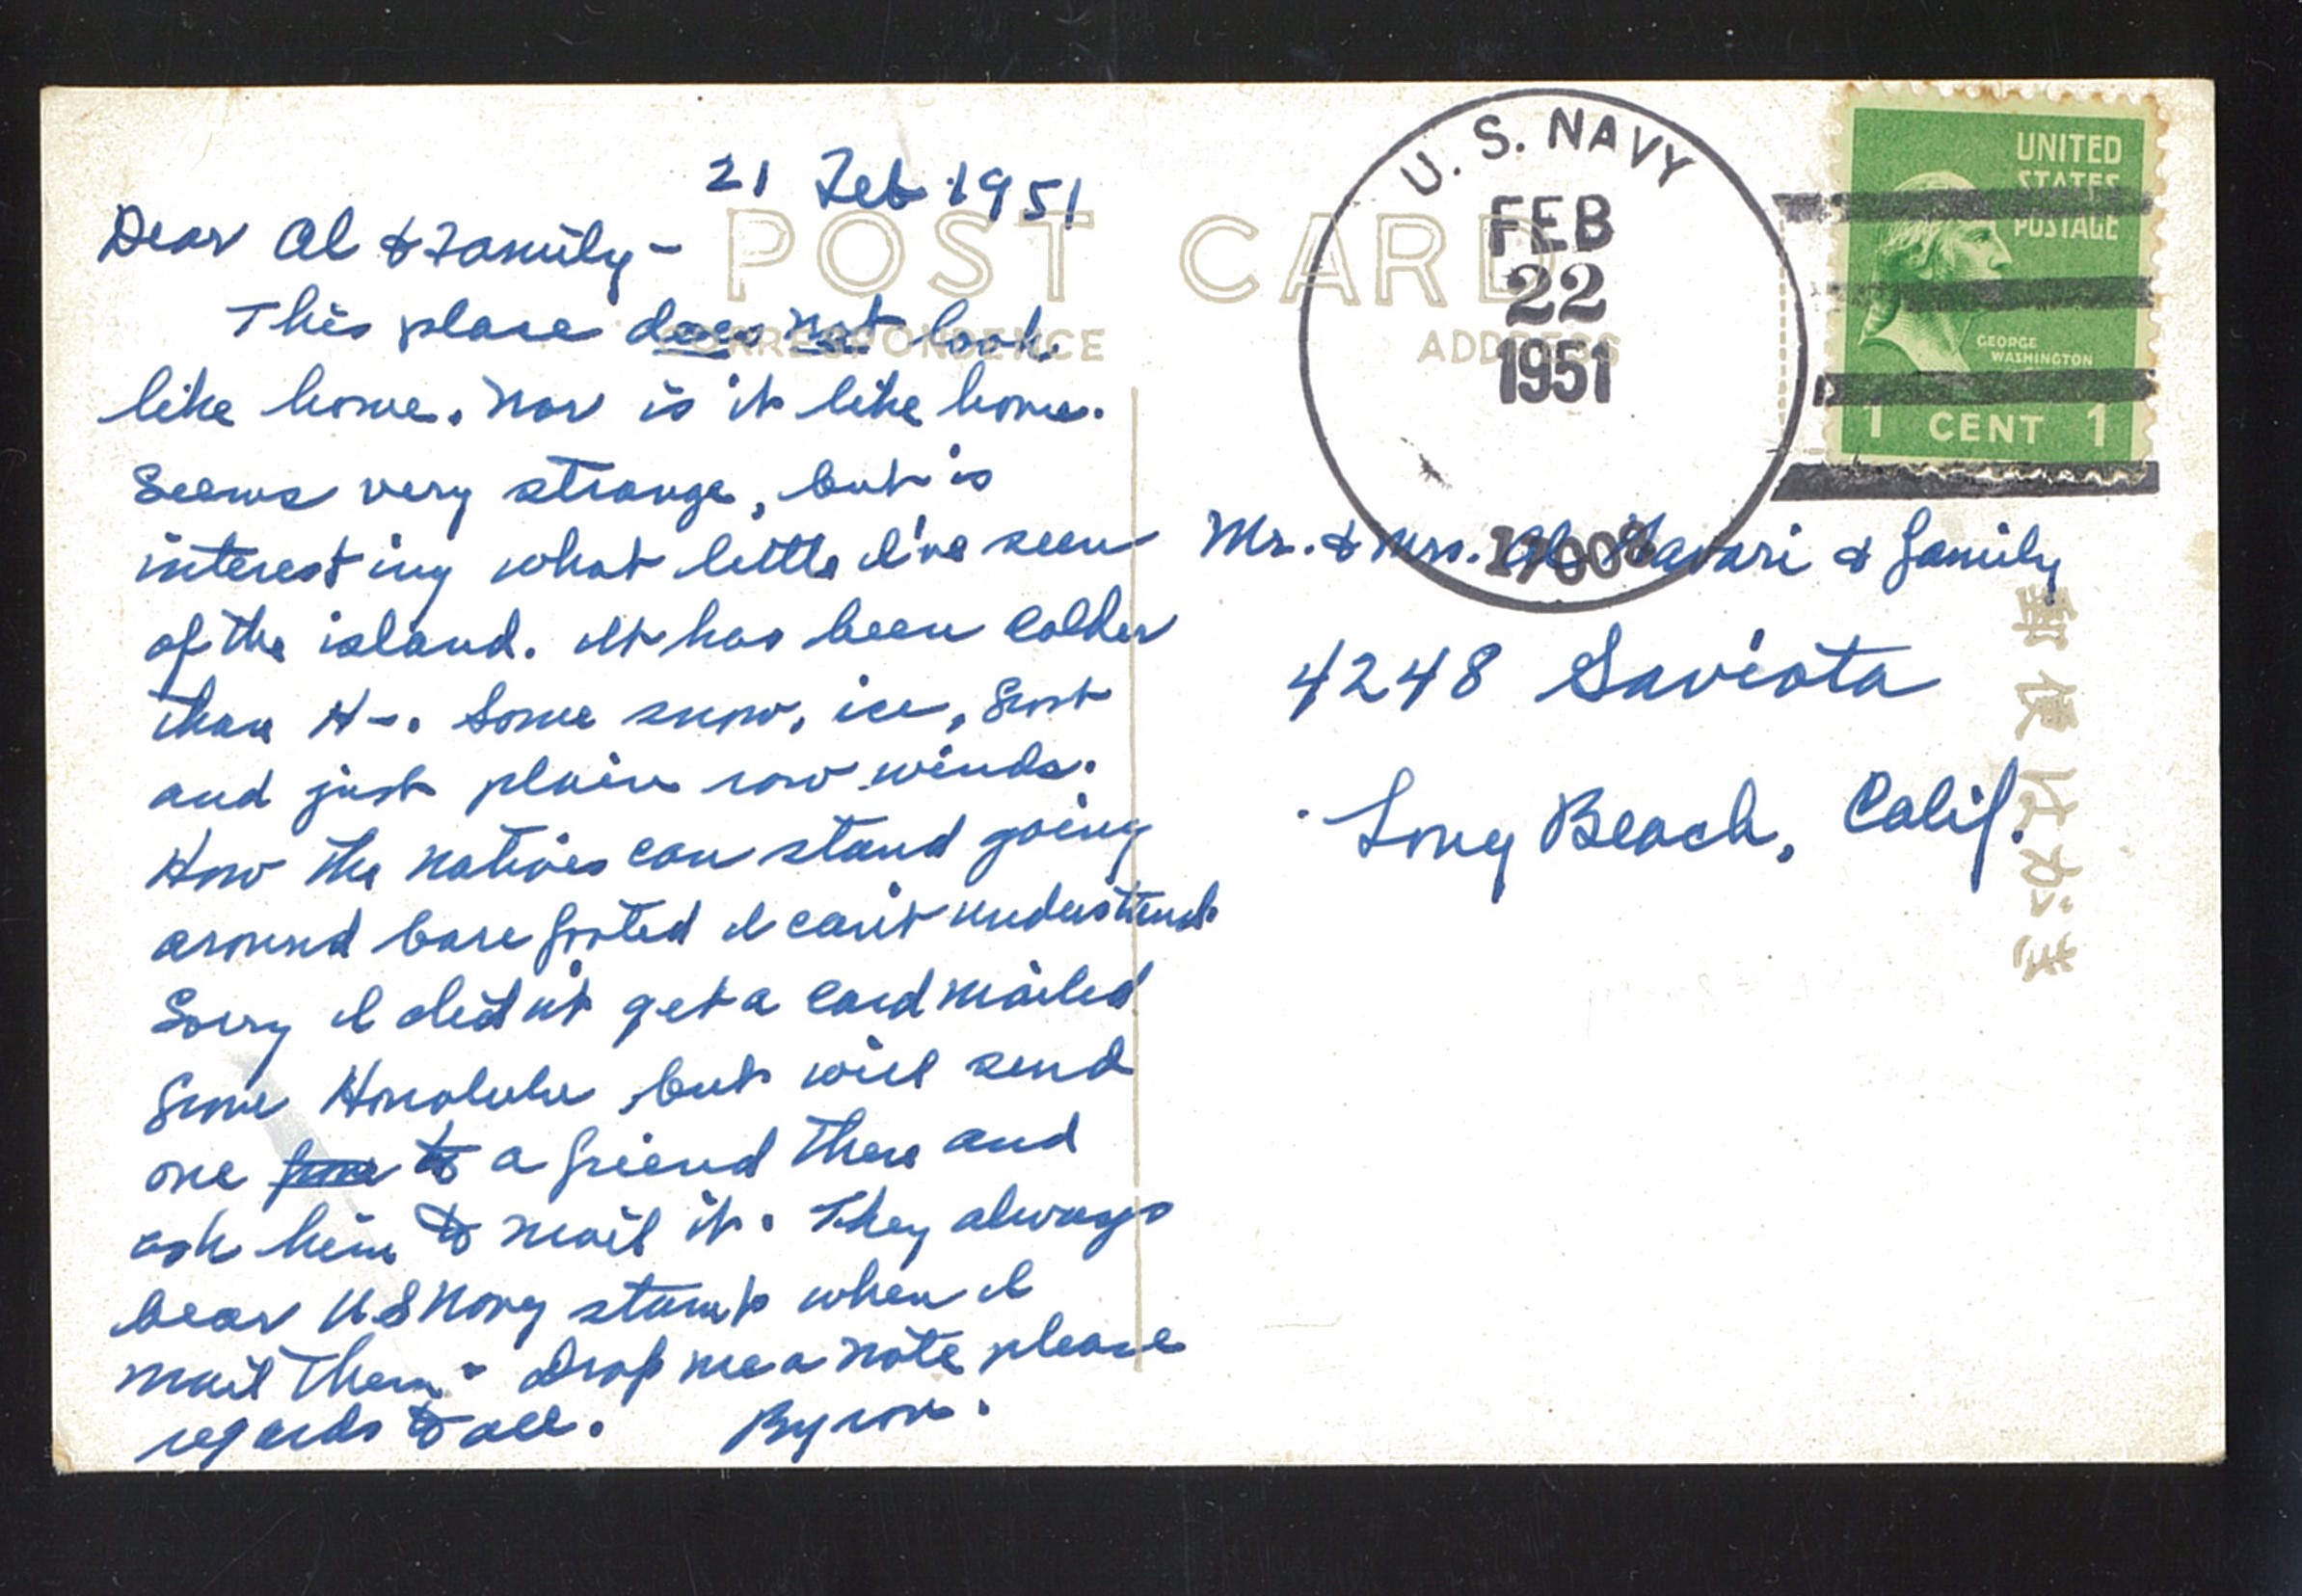 21 Feb 1951
Dear Al & Family -
This place does not look
like home. Nor is it like home.
Seems very strange, but is
interesting what little I've seen
of the island. It has been colder
than H-. Some snow, ice, frost
and just plain raw winds.
How the natives can stand going
around bare footed I can't understand.
Sorry I didn't get a card mailed
from Honolulu, but will send
one to a friend there and
ask him to mail it. They always
bear US Navy stamp when I
mail them - Drop me a note please
regards to all. Byron.
POST CARD
CORRESPONDENCE
ADDRESS
U. S. NAVY
FEB
22
1951
UNITED
STATES
POSTAGE
GEORGE
WASHINGTON
1 CENT 1
Mr. & Mrs. Al & family
4248
Long Beach, Calif.
郵便はがき